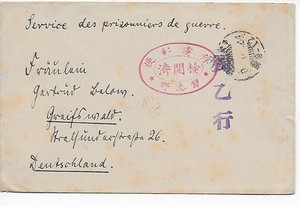 Service des prisonniers de guerre.
Fräulein
Gertrud Below,
Greifswald.
Stralsunderstraße 26.
Deutschland.
檢閲濟
習志野
乙行